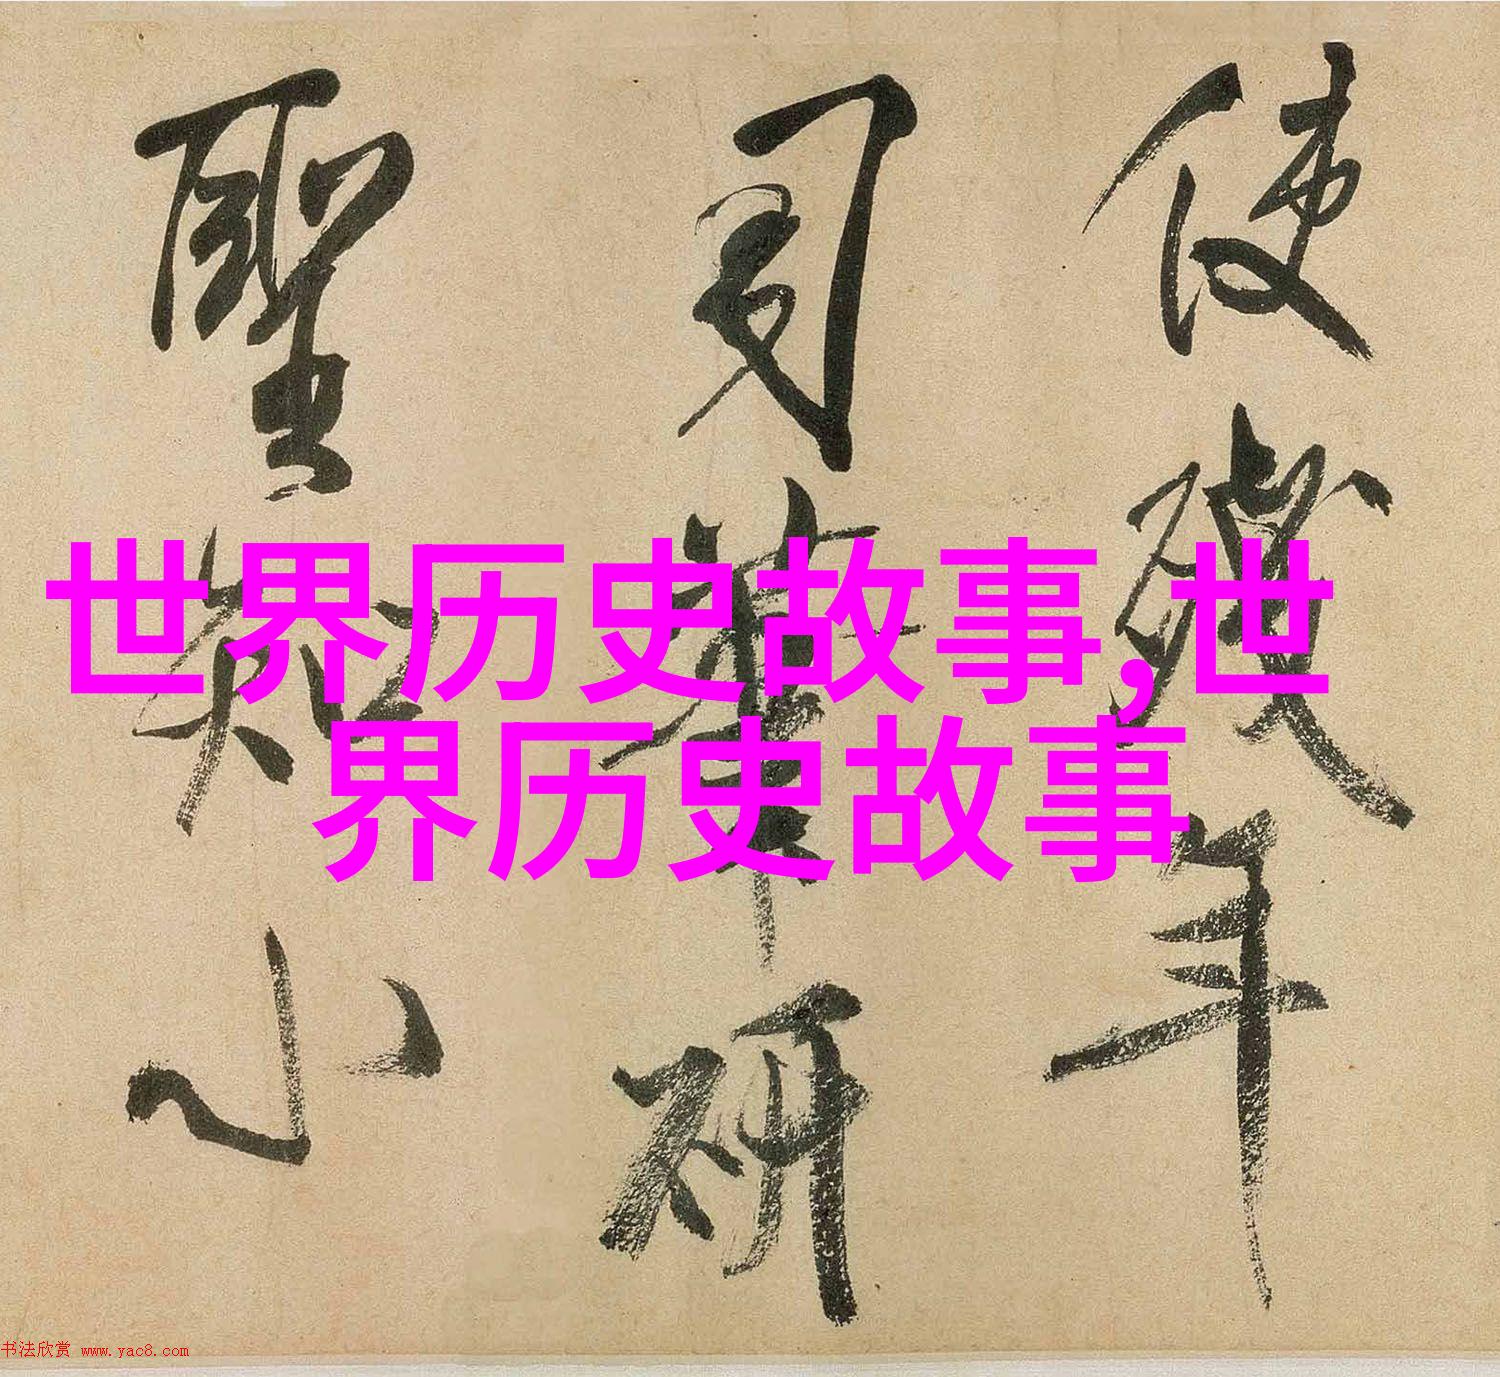 使殘年
司筆研
聖知小
世界历史故事,世
界历史故事
书法欣赏 www.yac8.com